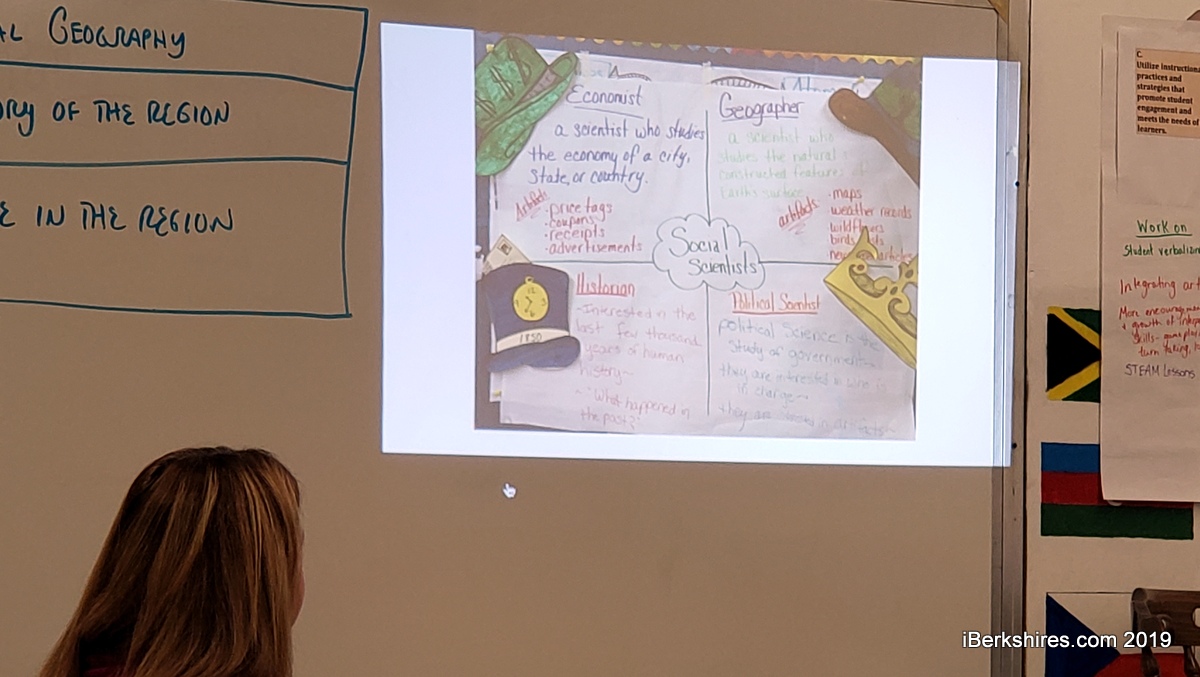 GEOGRAPHY
OF THE REGION
IN THE REGION
Economist
a scientist who studies
the economy of a city,
State, or country.
Artifacts
·price tags
·coupons
·receipts
·advertisements
Geographer
a scientist who
studies the natural
constructed features of
Earth's surface
artifacts
·maps
weather records
wildflowers
birds
articles
Social
Scientists
Historian
-Interested in the
last few thousand
years of human
history~
~ "What happened in
the past?"
1850
Political Scientist
political Science is the
Study of government~
they are interested in who is
in charge~
they are
artifacts~
C.
Utilize instructional
practices and
strategies that
promote student
engagement and
meets the needs of
learners.
Work on
Student
Integrating
growth of
skills-
turn taking,
STEAM Lessons
iBerkshires.com 2019